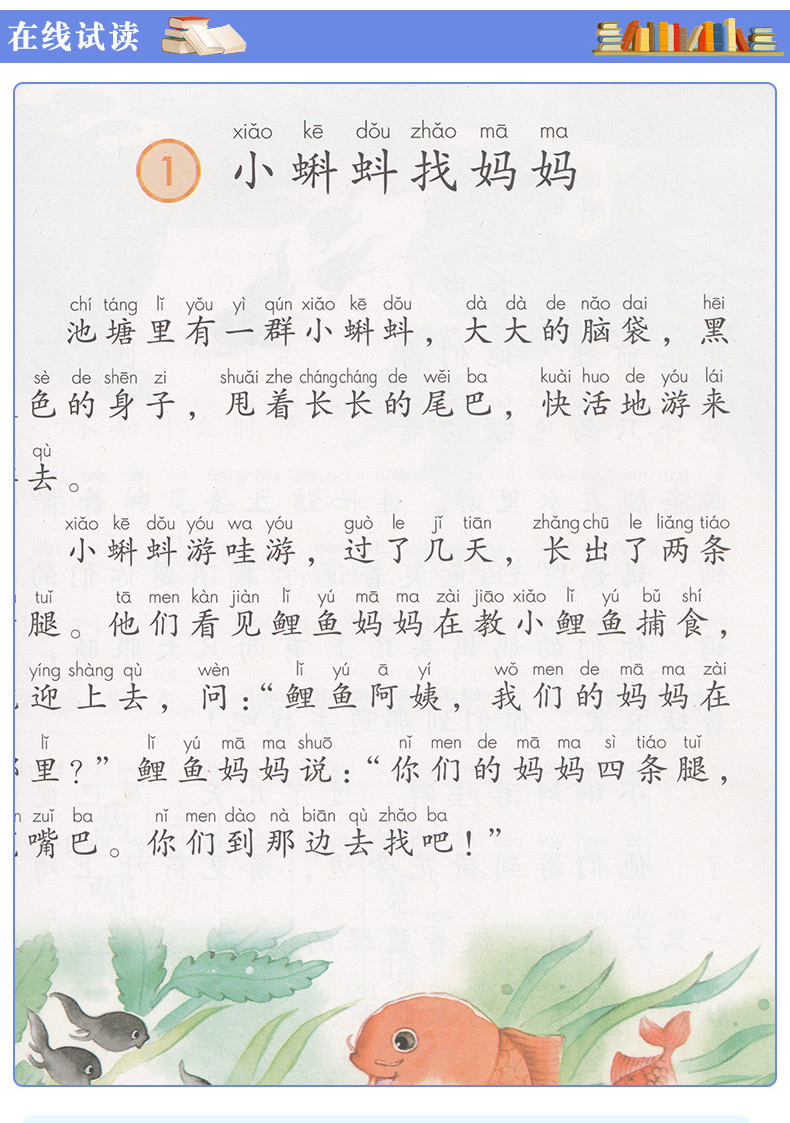 在线试读
xiǎo kē dǒu zhǎo mā ma
1 小蝌蚪找妈妈
chí táng lǐ yǒu yì qún xiǎo kē dǒu dà dà de nǎo dai hēi
池塘里有一群小蝌蚪，大大的脑袋，黑
sè de shēn zi shuǎi zhe cháng cháng de wěi ba kuài huo de yóu lái
色的身子，甩着长长的尾巴，快活地游来
qù
去。
xiǎo kē dǒu yóu wa yóu guò le jǐ tiān zhǎng chū le liǎng tiáo
小蝌蚪游哇游，过了几天，长出了两条
tuǐ tā men kàn jiàn lǐ yú mā ma zài jiāo xiǎo lǐ yú bǔ shí
腿。他们看见鲤鱼妈妈在教小鲤鱼捕食，
yíng shàng qù wèn lǐ yú ā yí wǒ men de mā ma zài
迎上去，问：“鲤鱼阿姨，我们的妈妈在
lǐ lǐ yú mā ma shuō nǐ men de mā ma sì tiáo tuǐ
里？” 鲤鱼妈妈说：“你们的妈妈四条腿，
zuǐ ba nǐ men dào nà biān qù zhǎo ba
嘴巴。你们到那边去找吧！”